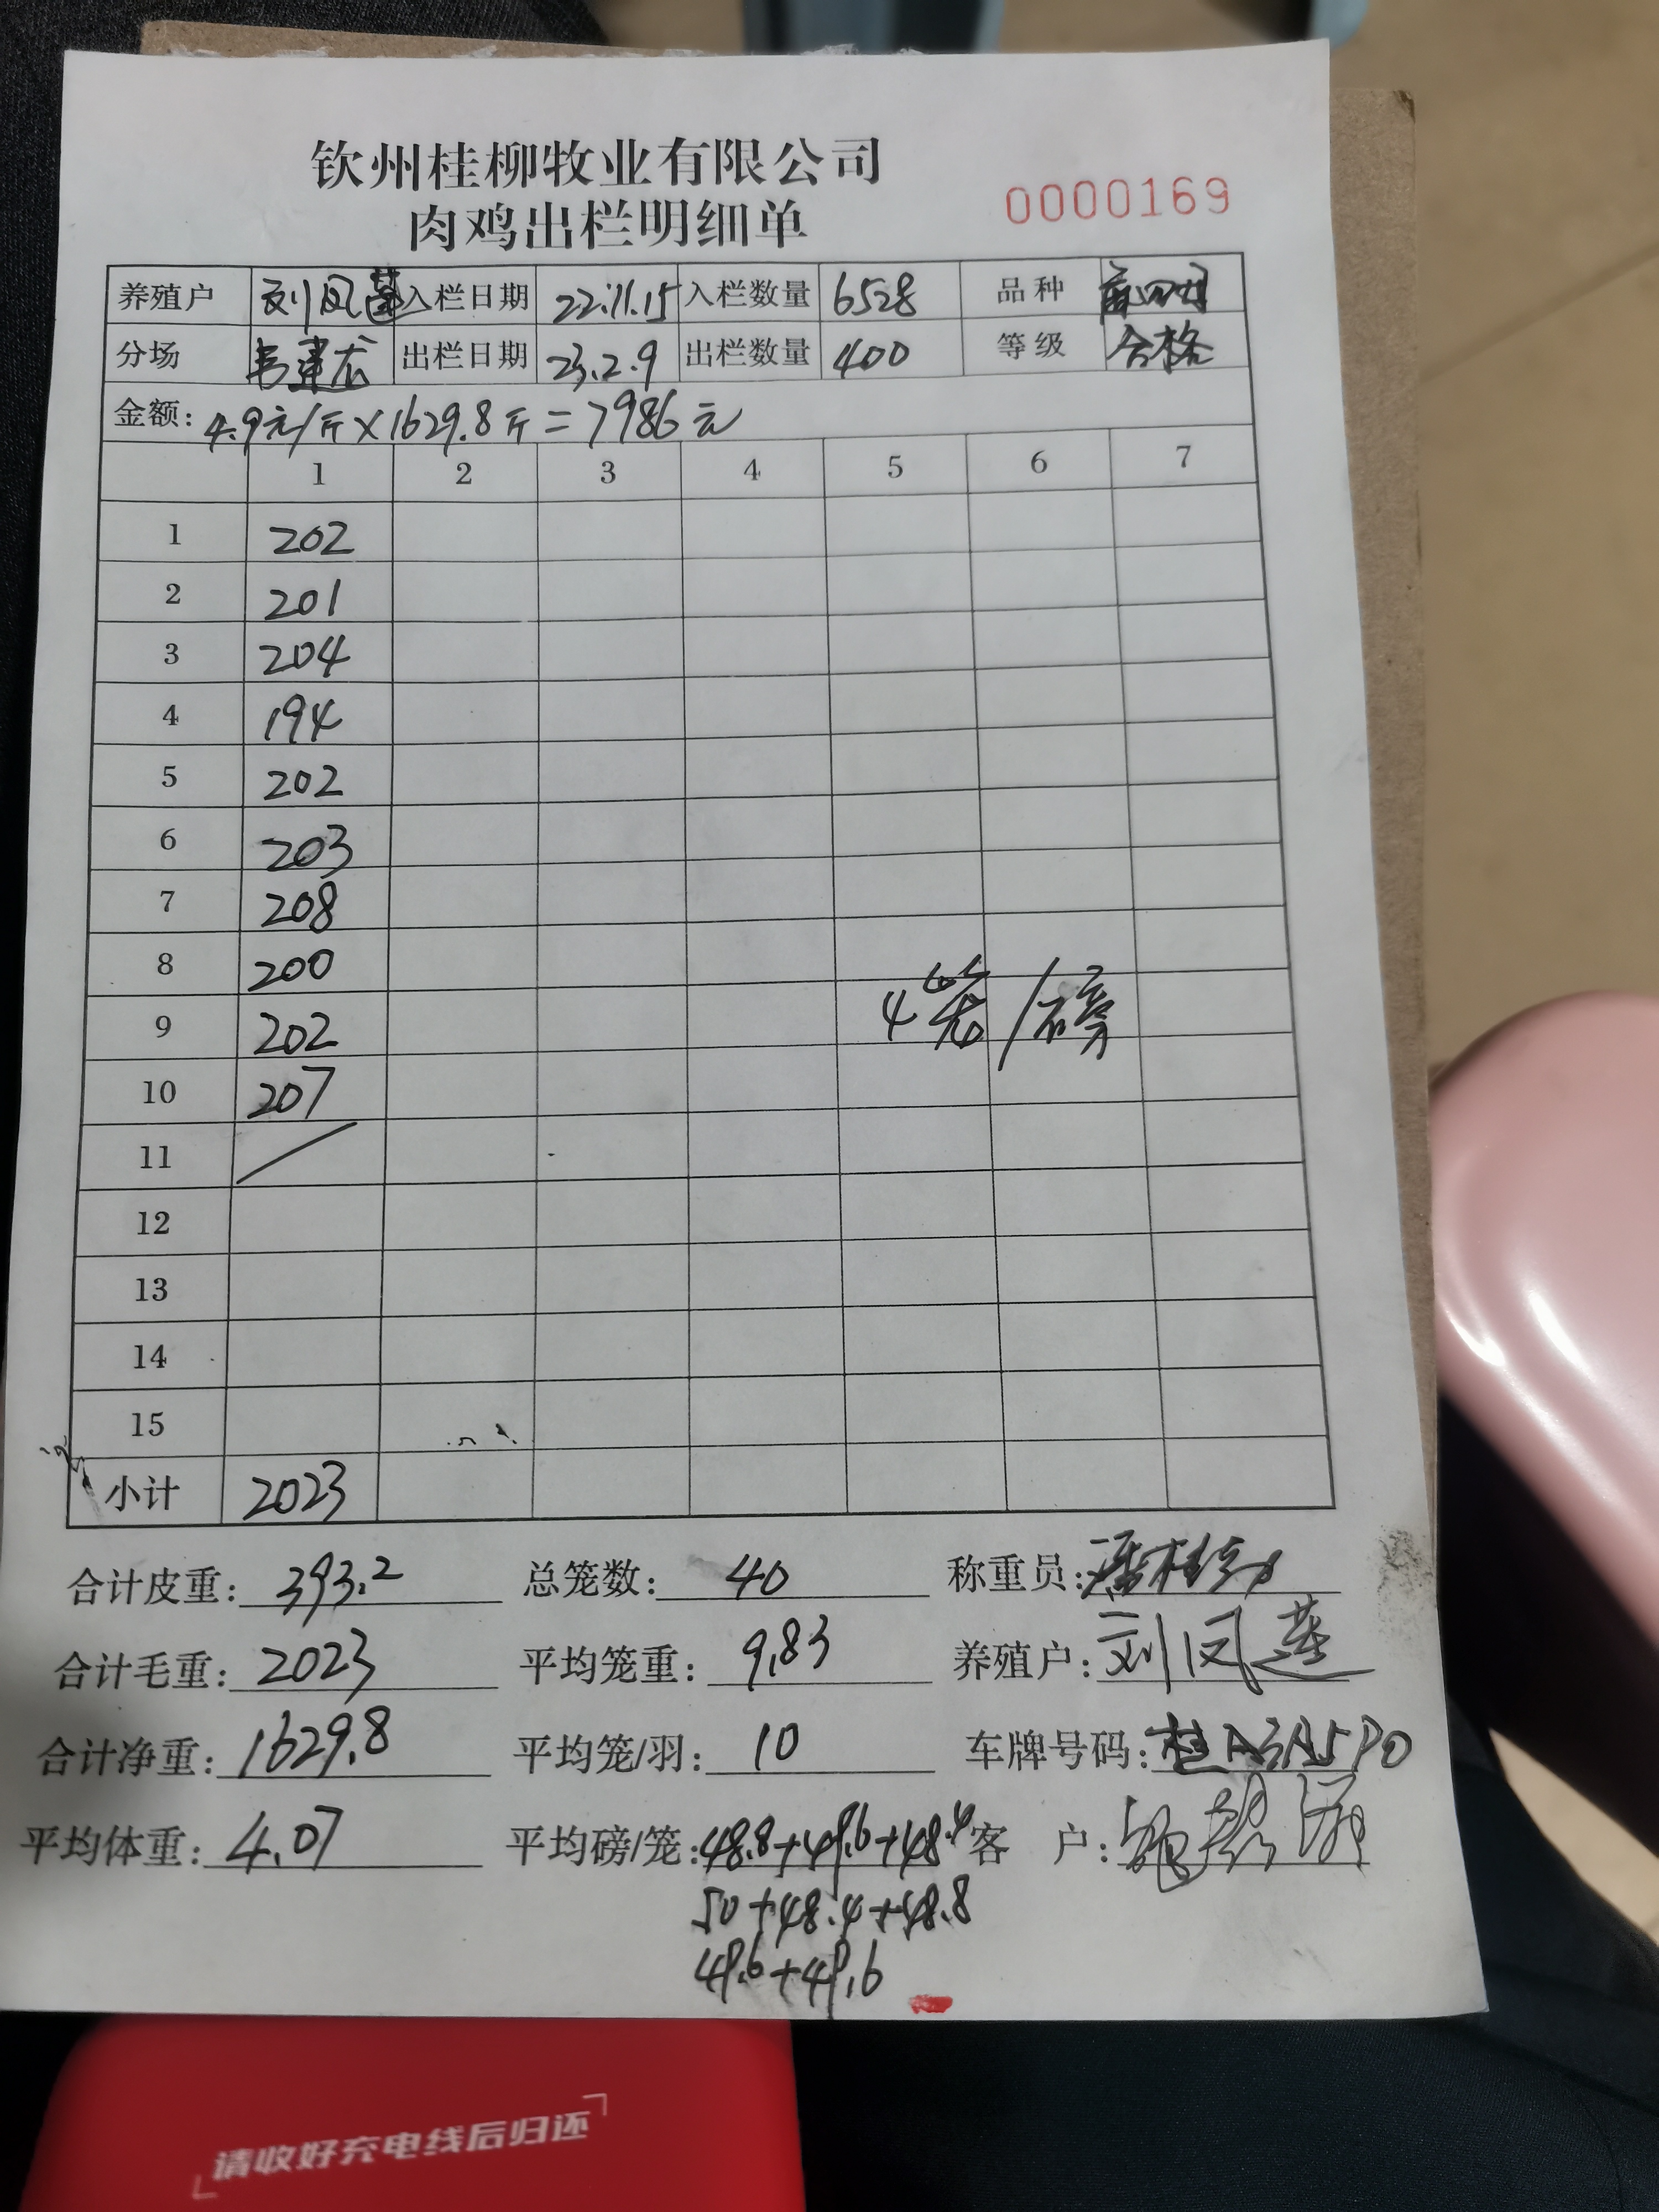 钦州桂柳牧业有限公司
肉鸡出栏明细单
0000169
养殖户 刘凤莲 入栏日期 22.11.15 入栏数量 6528 品种
分场 韦建宏 出栏日期 23.2.9 出栏数量 400 等级 合格
金额: 4.9元/斤×1629.8斤=7986元
1 2 3 4 5 6 7
1 202
2 201
3 204
4 194
5 202
6 203
7 208
8 200
9 202
4笼/磅
10 207
11 /
12
13
14
15
小计 2023
合计皮重: 393.2 总笼数: 40 称重员:
合计毛重: 2023 平均笼重: 9.83 养殖户: 刘凤莲
合计净重: 1629.8 平均笼/羽: 10 车牌号码: 桂A3A5P0
平均体重: 4.07 平均磅/笼: 48.8+49.6+48.4 客 户:
50+48.4+48.8
49.6+49.6
请收好充电线后归还